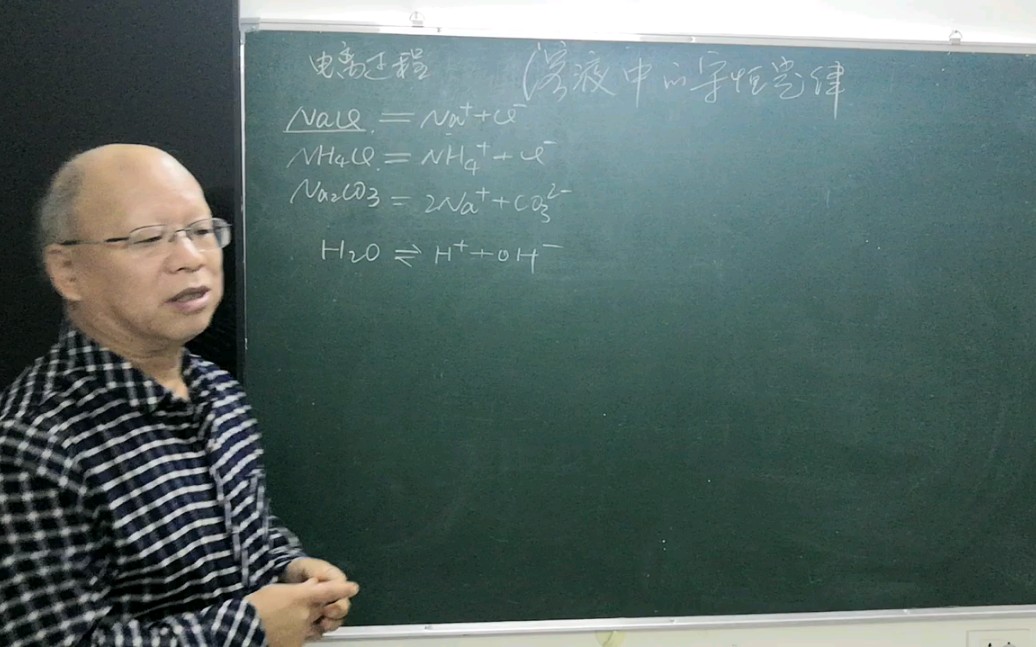 电离过程
溶液中的守恒定律
NaCl = Na⁺ + Cl⁻
NH₄Cl = NH₄⁺ + Cl⁻
Na₂CO₃ = 2Na⁺ + CO₃²⁻
H₂O ⇌ H⁺ + OH⁻